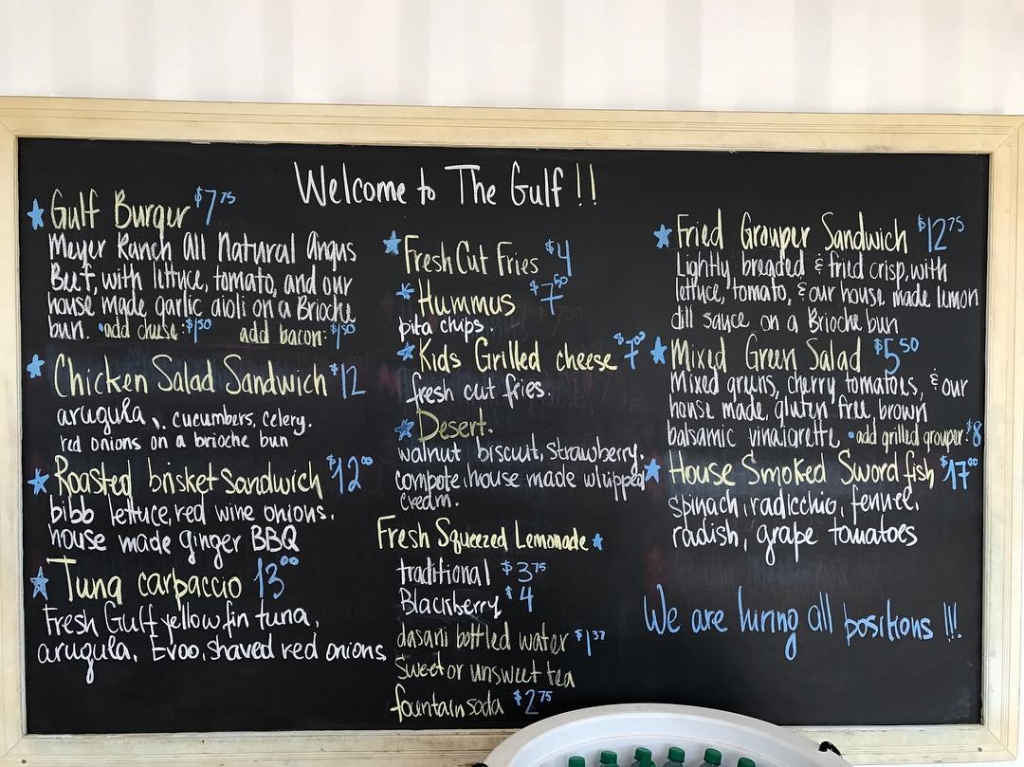 Welcome to The Gulf!!
Gulf Burger $7.75
Meyer Ranch All Natural Angus
Beef, with lettuce, tomato, and our
house made garlic aioli on a Brioche
bun. •add cheese: $1.50 add bacon: $1.50
Chicken Salad Sandwich $12
arugula, cucumbers, celery.
red onions on a brioche bun
Roasted brisket Sandwich $12.00
bibb lettuce, red wine onions.
house made ginger BBQ
Tuna carpaccio 13.00
Fresh Gulf yellow fin tuna,
arugula, Evoo, shaved red onions
Fresh Cut Fries $4
Hummus $7.50
pita chips.
Kids Grilled cheese $7.00
fresh cut fries.
Desert.
walnut biscuit, strawberry.
compote, house made whipped
cream.
Fresh Squeezed Lemonade
traditional $3.75
Blackberry $4
dasani bottled water $1.37
Sweet or unsweet tea
fountain soda $2.75
Fried Grouper Sandwich $12.75
Lightly breaded & fried crisp, with
lettuce, tomato, & our house made lemon
dill sauce on a Brioche bun
Mixed Green Salad $5.50
Mixed greens, cherry tomatoes, & our
house made, gluten free, brown
balsamic vinaigrette •add grilled grouper: $8
House Smoked Sword fish $17.00
spinach, radicchio, fennel,
radish, grape tomatoes
We are hiring all positions!!!